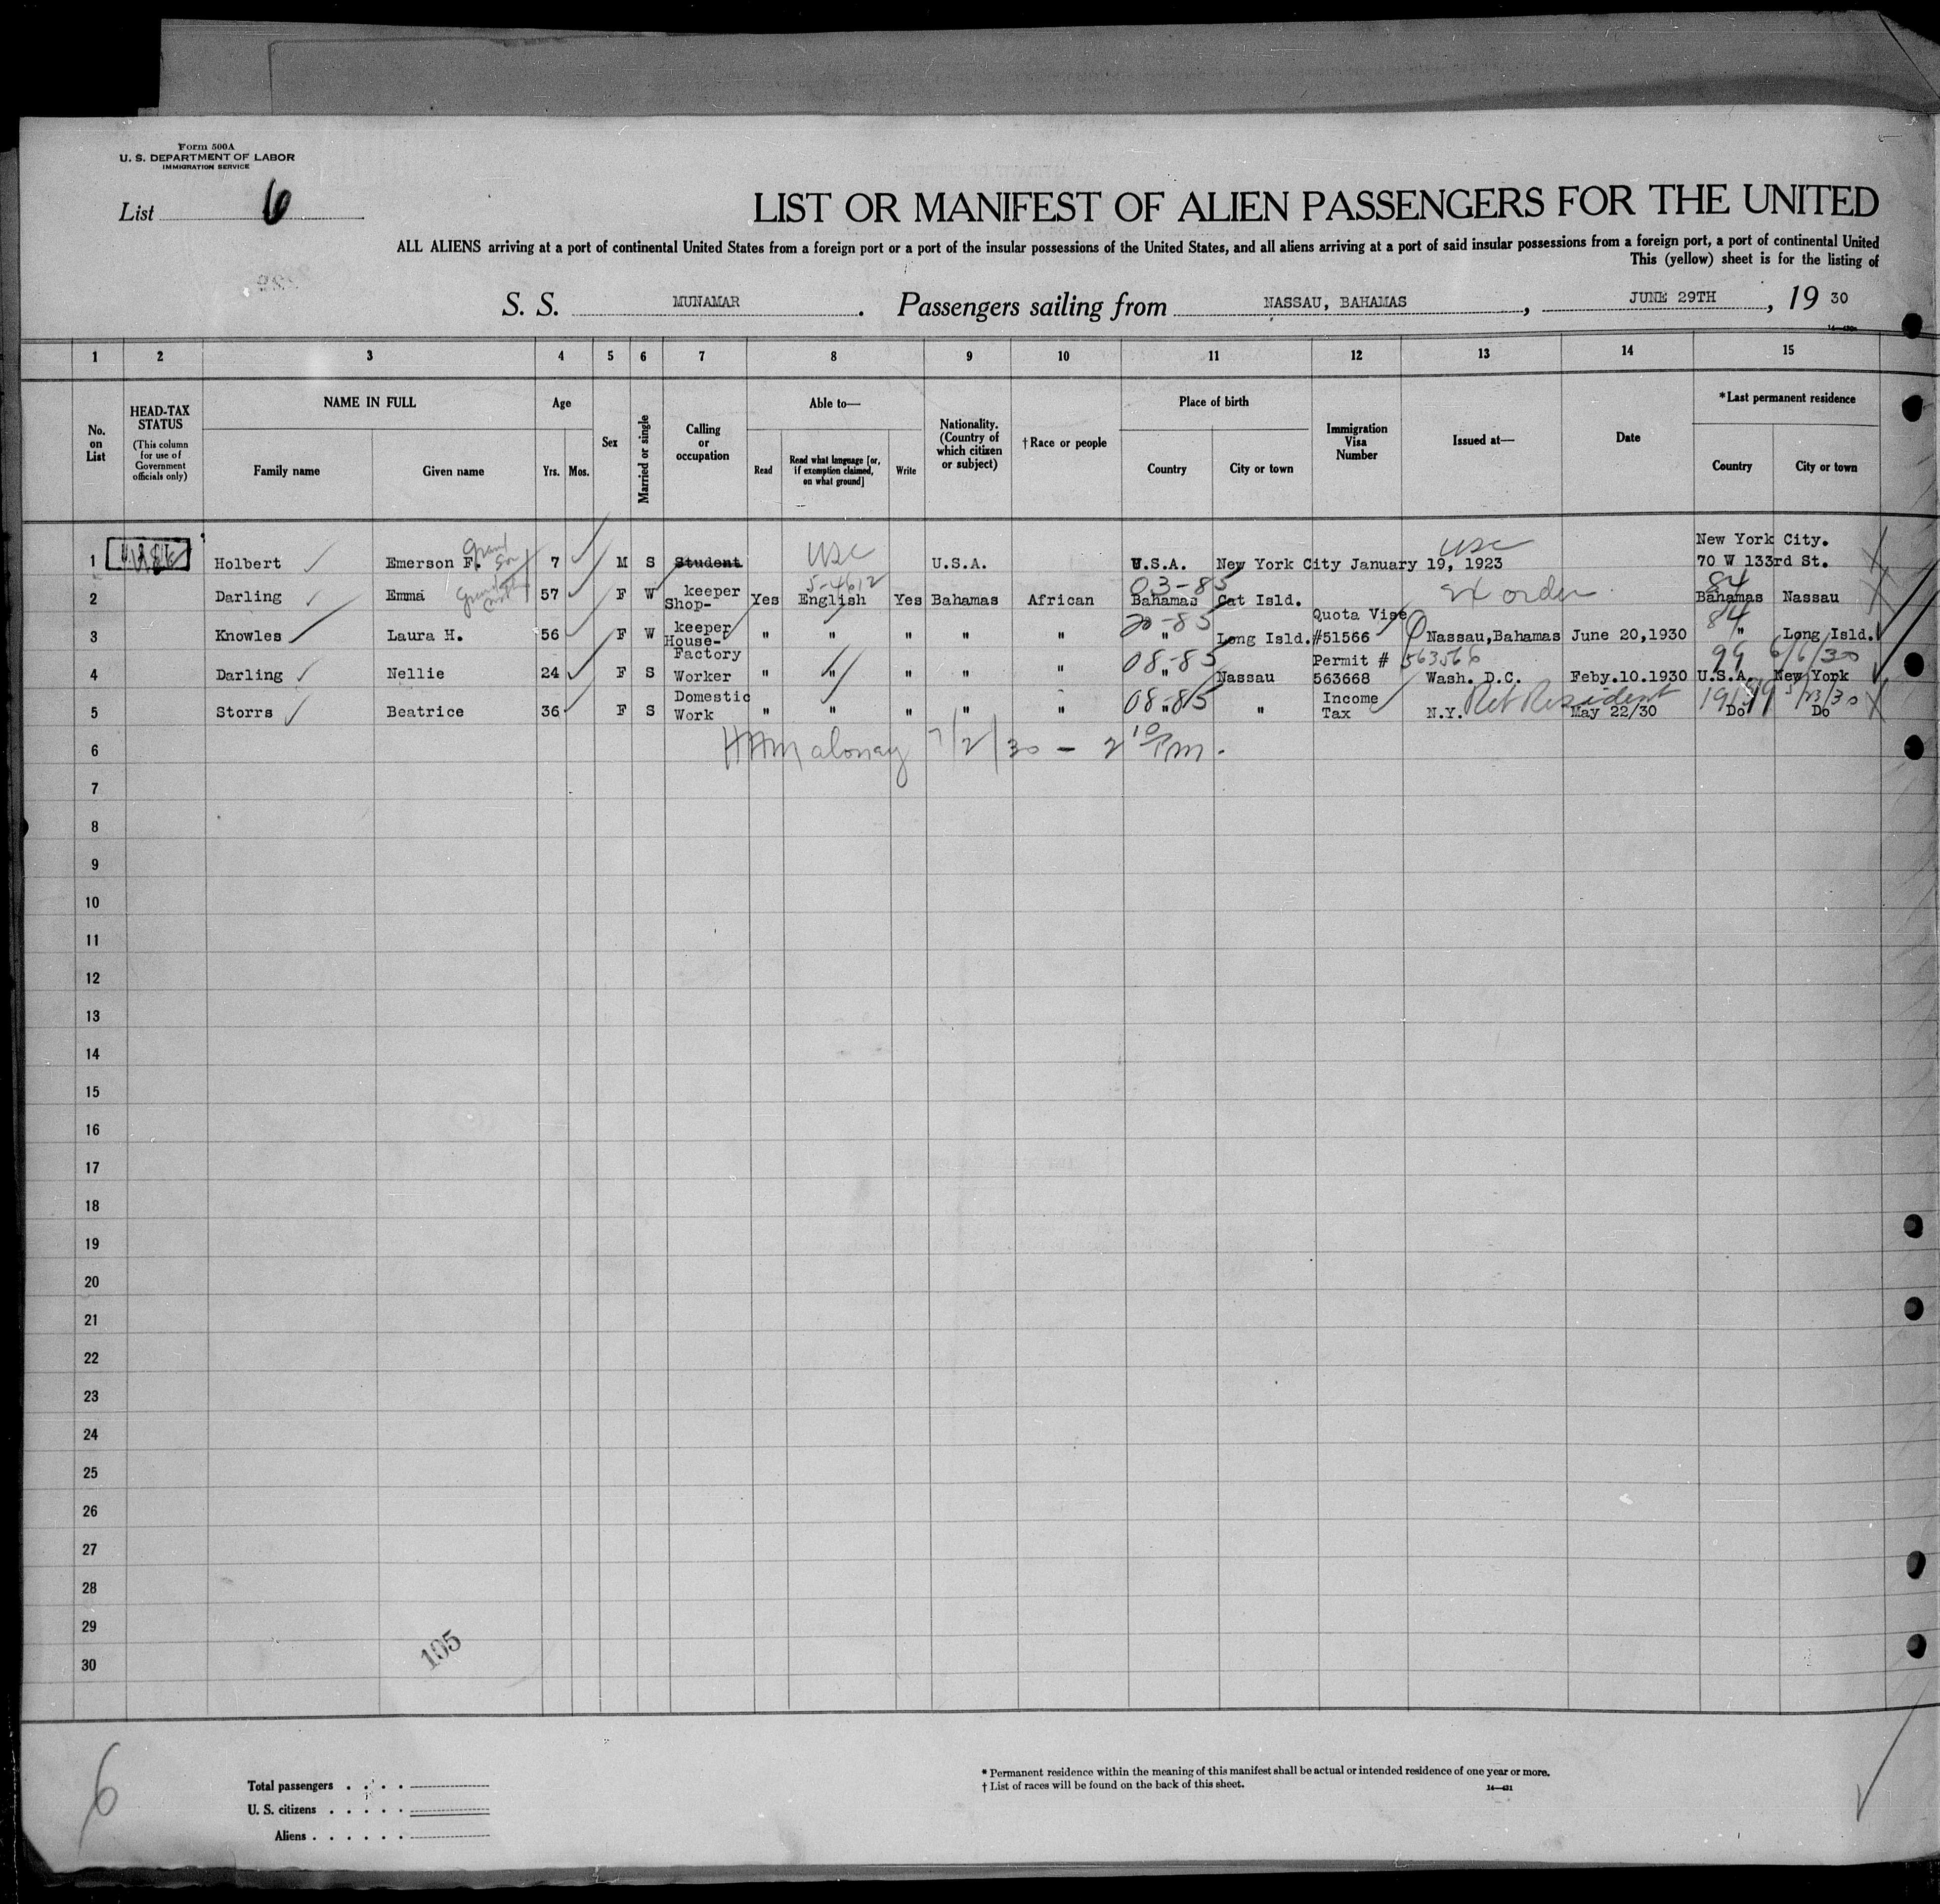 Form 500A
U. S. DEPARTMENT OF LABOR
IMMIGRATION SERVICE
List 6
LIST OR MANIFEST OF ALIEN PASSENGERS FOR THE UNITED
ALL ALIENS arriving at a port of continental United States from a foreign port or a port of the insular possessions of the United States, and all aliens arriving at a port of said insular possessions from a foreign port, a port of continental United
This (yellow) sheet is for the listing of
S. S. MUNAMAR. Passengers sailing from NASSAU, BAHAMAS, JUNE 29TH, 19 30
1 2 3 4 5 6 7 8 9 10 11 12 13 14 15
No. on List
HEAD-TAX STATUS
(This column for use of Government officials only)
NAME IN FULL
Family name Given name
Age
Yrs. Mos.
Sex
Married or single
Calling or occupation
Able to—
Read
Read what language [or, if exemption claimed, on what ground]
Write
Nationality. (Country of which citizen or subject)
†Race or people
Place of birth
Country City or town
Immigration Visa Number
Issued at—
Date
*Last permanent residence
Country City or town
New York City.
1 Holbert Emerson F. Grand Son 7 M S Student USC U.S.A. U.S.A. New York City January 19, 1923 USC 70 W 133rd St.
5-4612 03-85 84
2 Darling Emma 57 F W Shop-keeper Yes English Yes Bahamas African Bahamas Cat Isld. Ex order Bahamas Nassau
20-85 Quota Vise 84
3 Knowles Laura H. 56 F W House-keeper " " " " " " Long Isld. #51566 Nassau,Bahamas June 20,1930 " Long Isld.
08-85 Permit # 563566 99 6/6/30
4 Darling Nellie 24 F S Factory Worker " " " " " " Nassau 563668 Wash. D.C. Feby.10.1930 U.S.A. New York
08-85 Ret Resident 5/23/30
5 Storrs Beatrice 36 F S Domestic Work " " " " " " " Income Tax N.Y. May 22/30 Do Do
6 Maloney 7/2/30 - 2 10 Pm.
7
8
9
10
11
12
13
14
15
16
17
18
19
20
21
22
23
24
25
26
27
28
29
30
105
6
Total passengers . . . .
U. S. citizens . . . . .
Aliens . . . . . .
* Permanent residence within the meaning of this manifest shall be actual or intended residence of one year or more.
† List of races will be found on the back of this sheet.
14—421